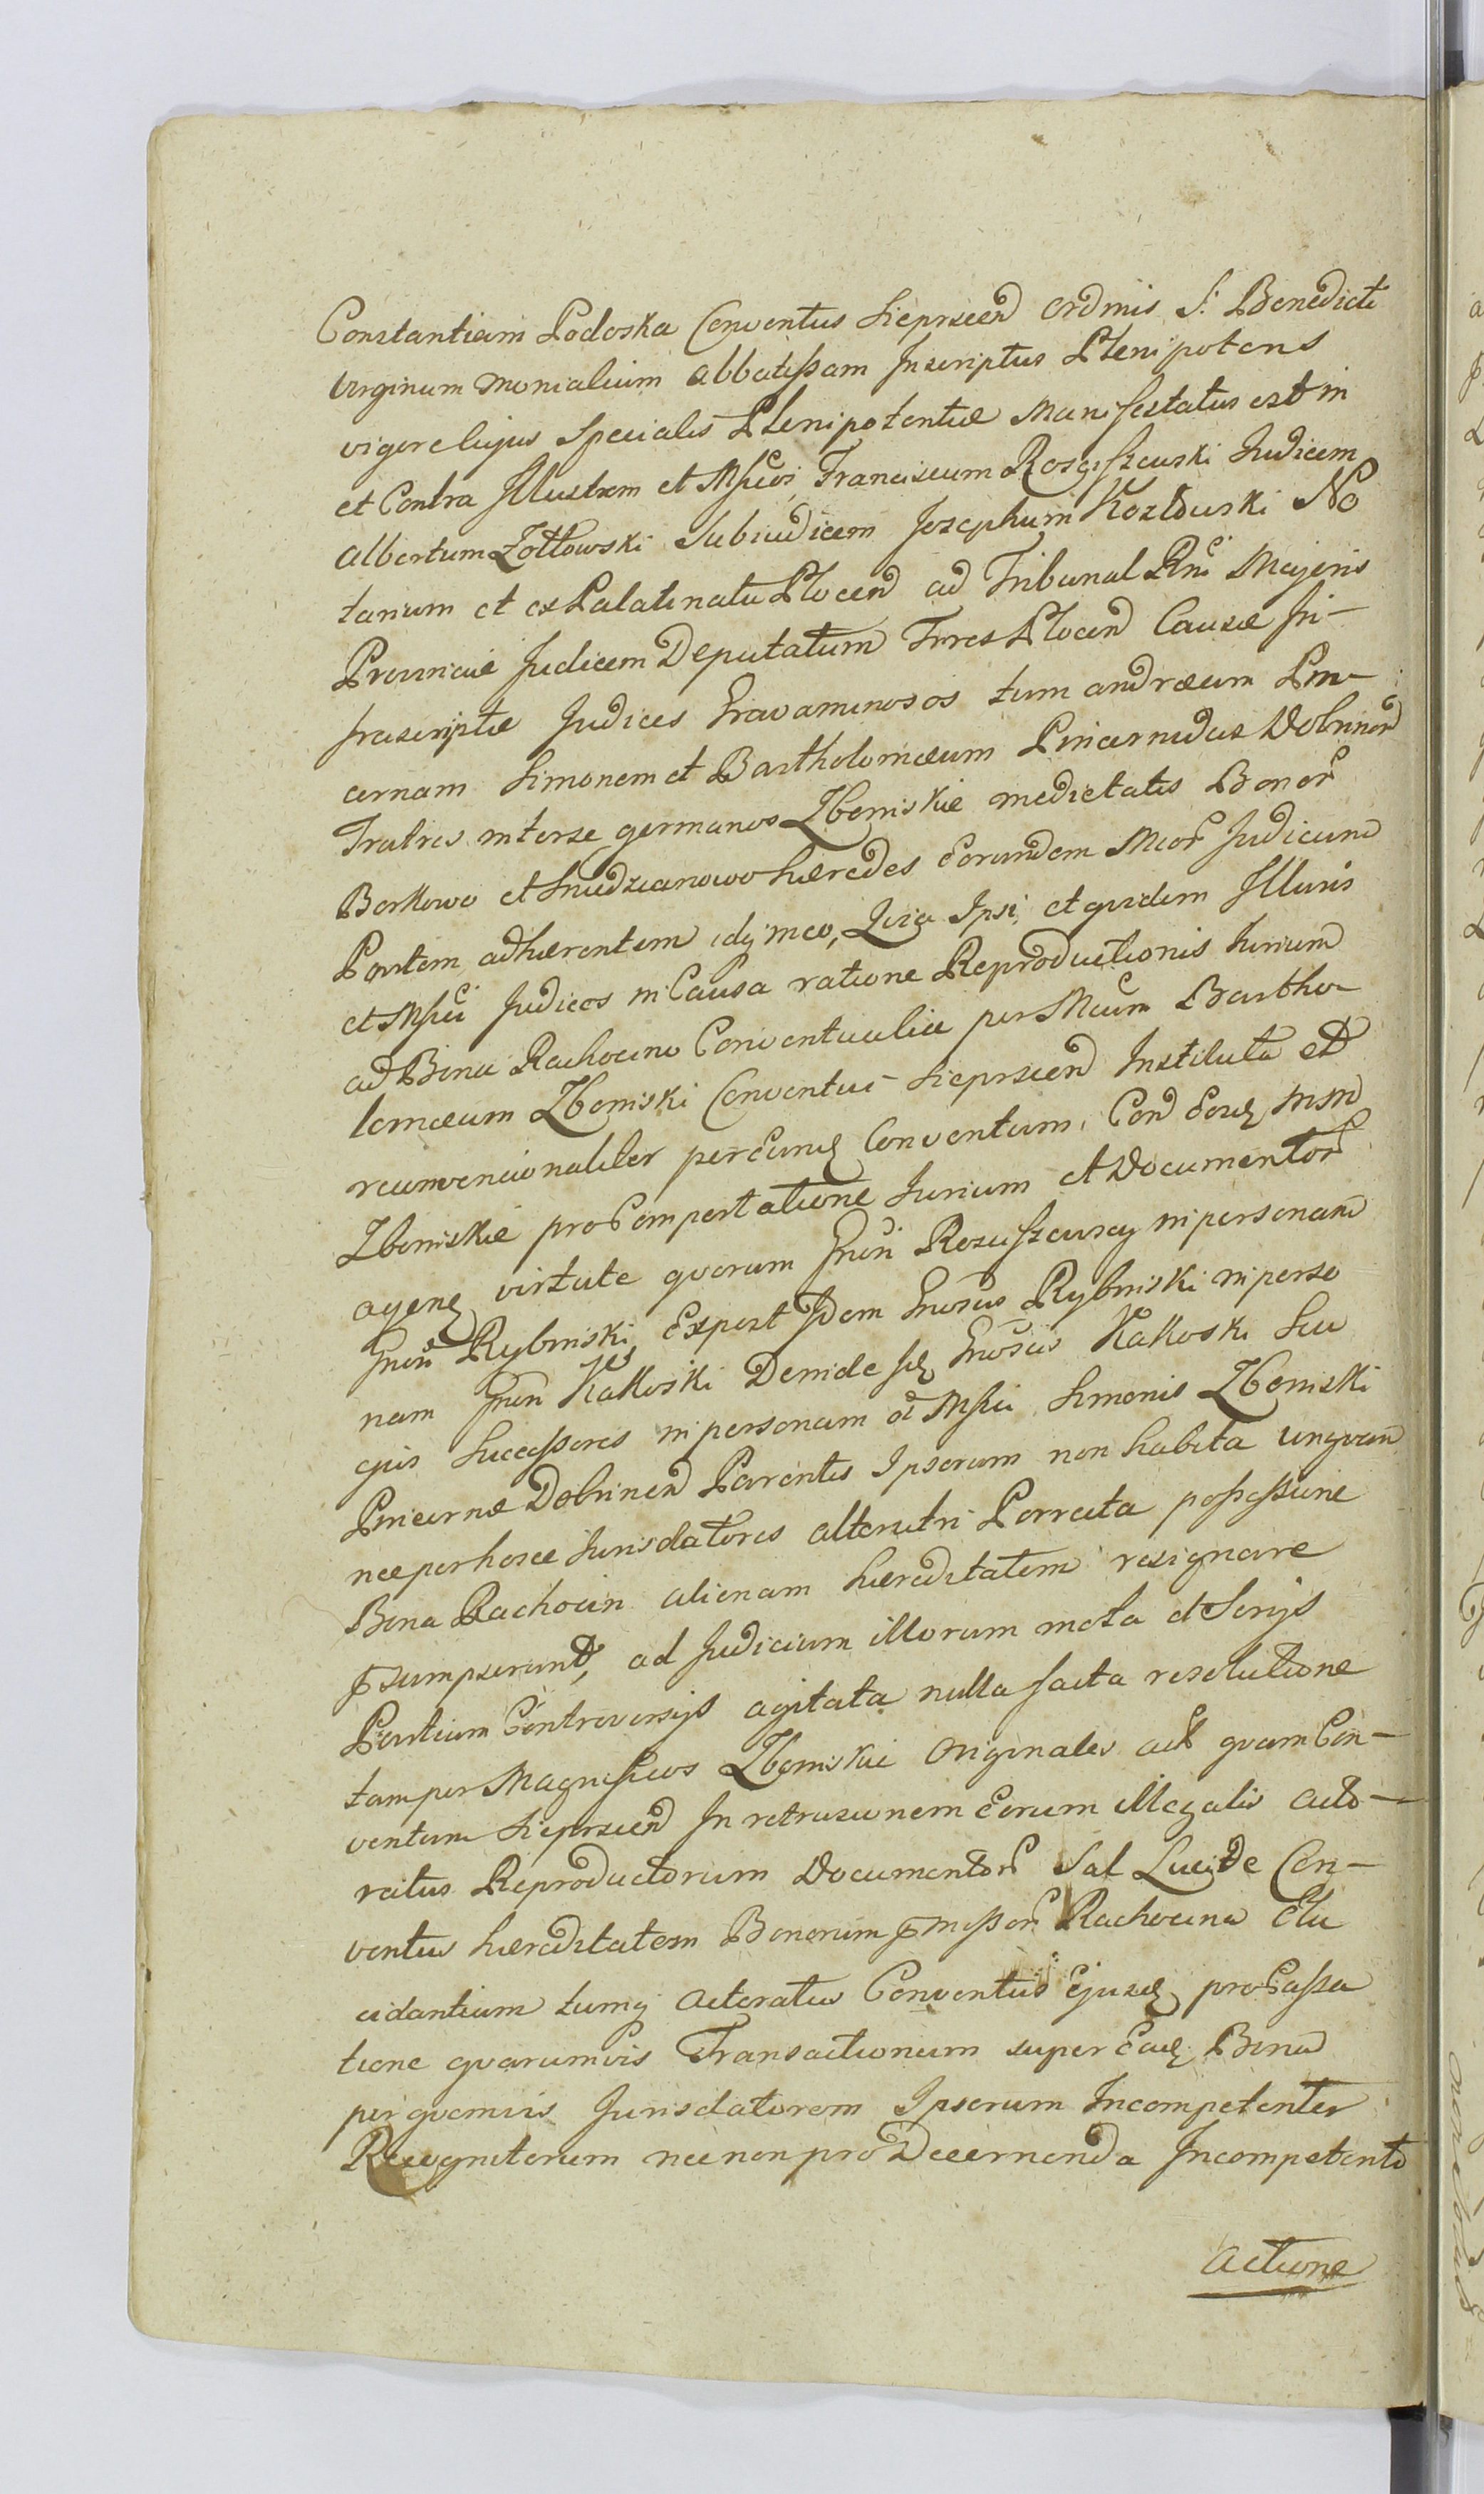 Constantiam Podoska Conventus Sieprscen Ordinis S: Benedicti
Virginum Monialium Abbatissam Inscriptus Plenipotens
vigore hujus Specialis Plenipotentiæ Manifestatus est in
et Contra Illustrem et Mfcos Franciscum Rosciszewski Judicem
Albertum Zołtowski Subiudicem Josephum Kozłowski No
tarium et ex Palatinatu Plocen ad Tribunal Rni Majoris
Provinciæ Judicem Deputatum Trres Plocen Causæ In-
frascriptæ Judices Gravaminosos tum Andræum Pin-
cernam Simonem et Bartholomæum Pincernidas Dobrinen
Fratres inter se germanos Zbomskie medietatis Bonor
Borkowo et Gnidzianowo hæredes Eorundem Mcor Judicum
Partem adhærentem idq; in eo, Quia Ipsi et quidem Illuris
et Mfci Judices in Causa ratione Reproductionis Jurium
ad Bona Rachocino Conventualia per Mcum Bartho
lomæum Zbomski Conventui Sieprscen Instituta et
reconvencionaliter per Eund Conventum, Con Eosd MM
Zbomskie pro Comportatione Jurium et Documentor
agen virtute quorum Gnon Rosciszewscy in personam
Gnon Rybinski Expost Idem Gnosus Rybinski in perso
nam Gnon Kakoski Deinde sd Gnosus Kakoski Seu
ejus Successores in personam oi Mfci Simonis Zbomski
Pincernæ Dobrinen Parentis Ipsorum non habita unquam
nec per hosce Jurisdatores alterutri Porrecta possessione
Bona Rachocin alienam hæreditatem resignare
psumpserunt, ad Judicium illorum mota et Serijs
Partium Controversijs agitata nulla facta resolutione
tam per Magnificos Zbomskie Originales act quam Con-
ventum Sieprscen In retrusionem Eorum illegalis acto-
ratus Reproductorum Documentor Sal Lucide Con-
ventus hæreditatem Bonorum pmissor Rachocino Elu
cidantium tumq; Actoratus Conventus Ejusd pro Cassa
tione quarumvis Transactionum super Ead Bona
per quemvis Jurisdatorem Ipsorum Incompetenter
Recognitorum nec non pro Decernenda Incompetenti
Actione